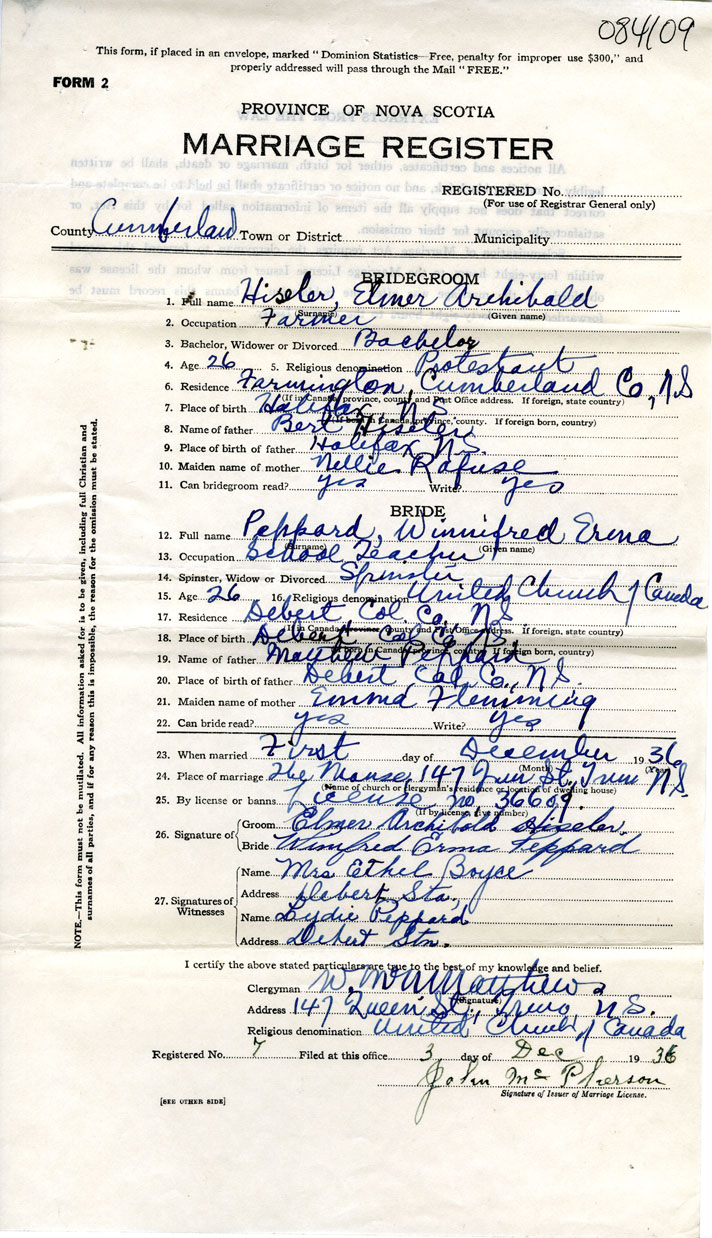 084109
This form, if placed in an envelope, marked "Dominion Statistics—Free, penalty for improper use $300," and
properly addressed will pass through the Mail "FREE."
FORM 2
PROVINCE OF NOVA SCOTIA
MARRIAGE REGISTER
REGISTERED No.
(For use of Registrar General only)
County Cumberland Town or District Municipality
BRIDEGROOM
1. Full name Hiseler, Elmer Archibald
(Surname) (Given name)
2. Occupation Farmer
3. Bachelor, Widower or Divorced Bachelor
4. Age 26 5. Religious denomination Protestant
6. Residence Farmington, Cumberland Co, N.S
(If in Canada, province, county and Post Office address. If foreign, state country)
7. Place of birth Halifax, N.S
(If born in Canada, province, county. If foreign born, country)
8. Name of father Bert Hiseler
9. Place of birth of father Halifax N.S.
10. Maiden name of mother Nellie Rafuse
11. Can bridegroom read? yes Write? yes
BRIDE
12. Full name Peppard, Winnifred Erma
(Surname) (Given name)
13. Occupation School Teacher
14. Spinster, Widow or Divorced Spinster
15. Age 26 16. Religious denomination United Church of Canada
17. Residence Debert Col. Co., N.S
(If in Canada province, county and Post Office address. If foreign, state country)
18. Place of birth Debert Col. Co. N.S.
(If born in Canada, province, county. If foreign born, country)
19. Name of father Peppard
20. Place of birth of father Debert Col. Co., N.S.
21. Maiden name of mother Emma Flemming
22. Can bride read? yes Write? yes
23. When married First day of December 1936
(Month) (Year)
24. Place of marriage The Manse, 147 Queen St., Truro N.S.
(Name of church or clergyman's residence or location of dwelling house)
25. By license or banns License no. 36609.
(If by license, give number)
26. Signature of Groom Elmer Archibald Hiseler.
Bride Winifred Erma Peppard
27. Signatures of Witnesses
Name Mrs Ethel Boyce
Address Debert Sta,
Name Lydie Peppard
Address Debert Stn.
I certify the above stated particulars are true to the best of my knowledge and belief.
Clergyman Matthews
(Signature)
Address 147 Queen St., Truro, N.S.
Religious denomination United Church of Canada
Registered No. 7 Filed at this office 3 day of Dec 1936
John McPherson
Signature of Issuer of Marriage License.
[SEE OTHER SIDE]
NOTE.—This form must not be mutilated. All information asked for is to be given, including full Christian and
surnames of all parties, and if for any reason this is impossible, the reason for the omission must be stated.